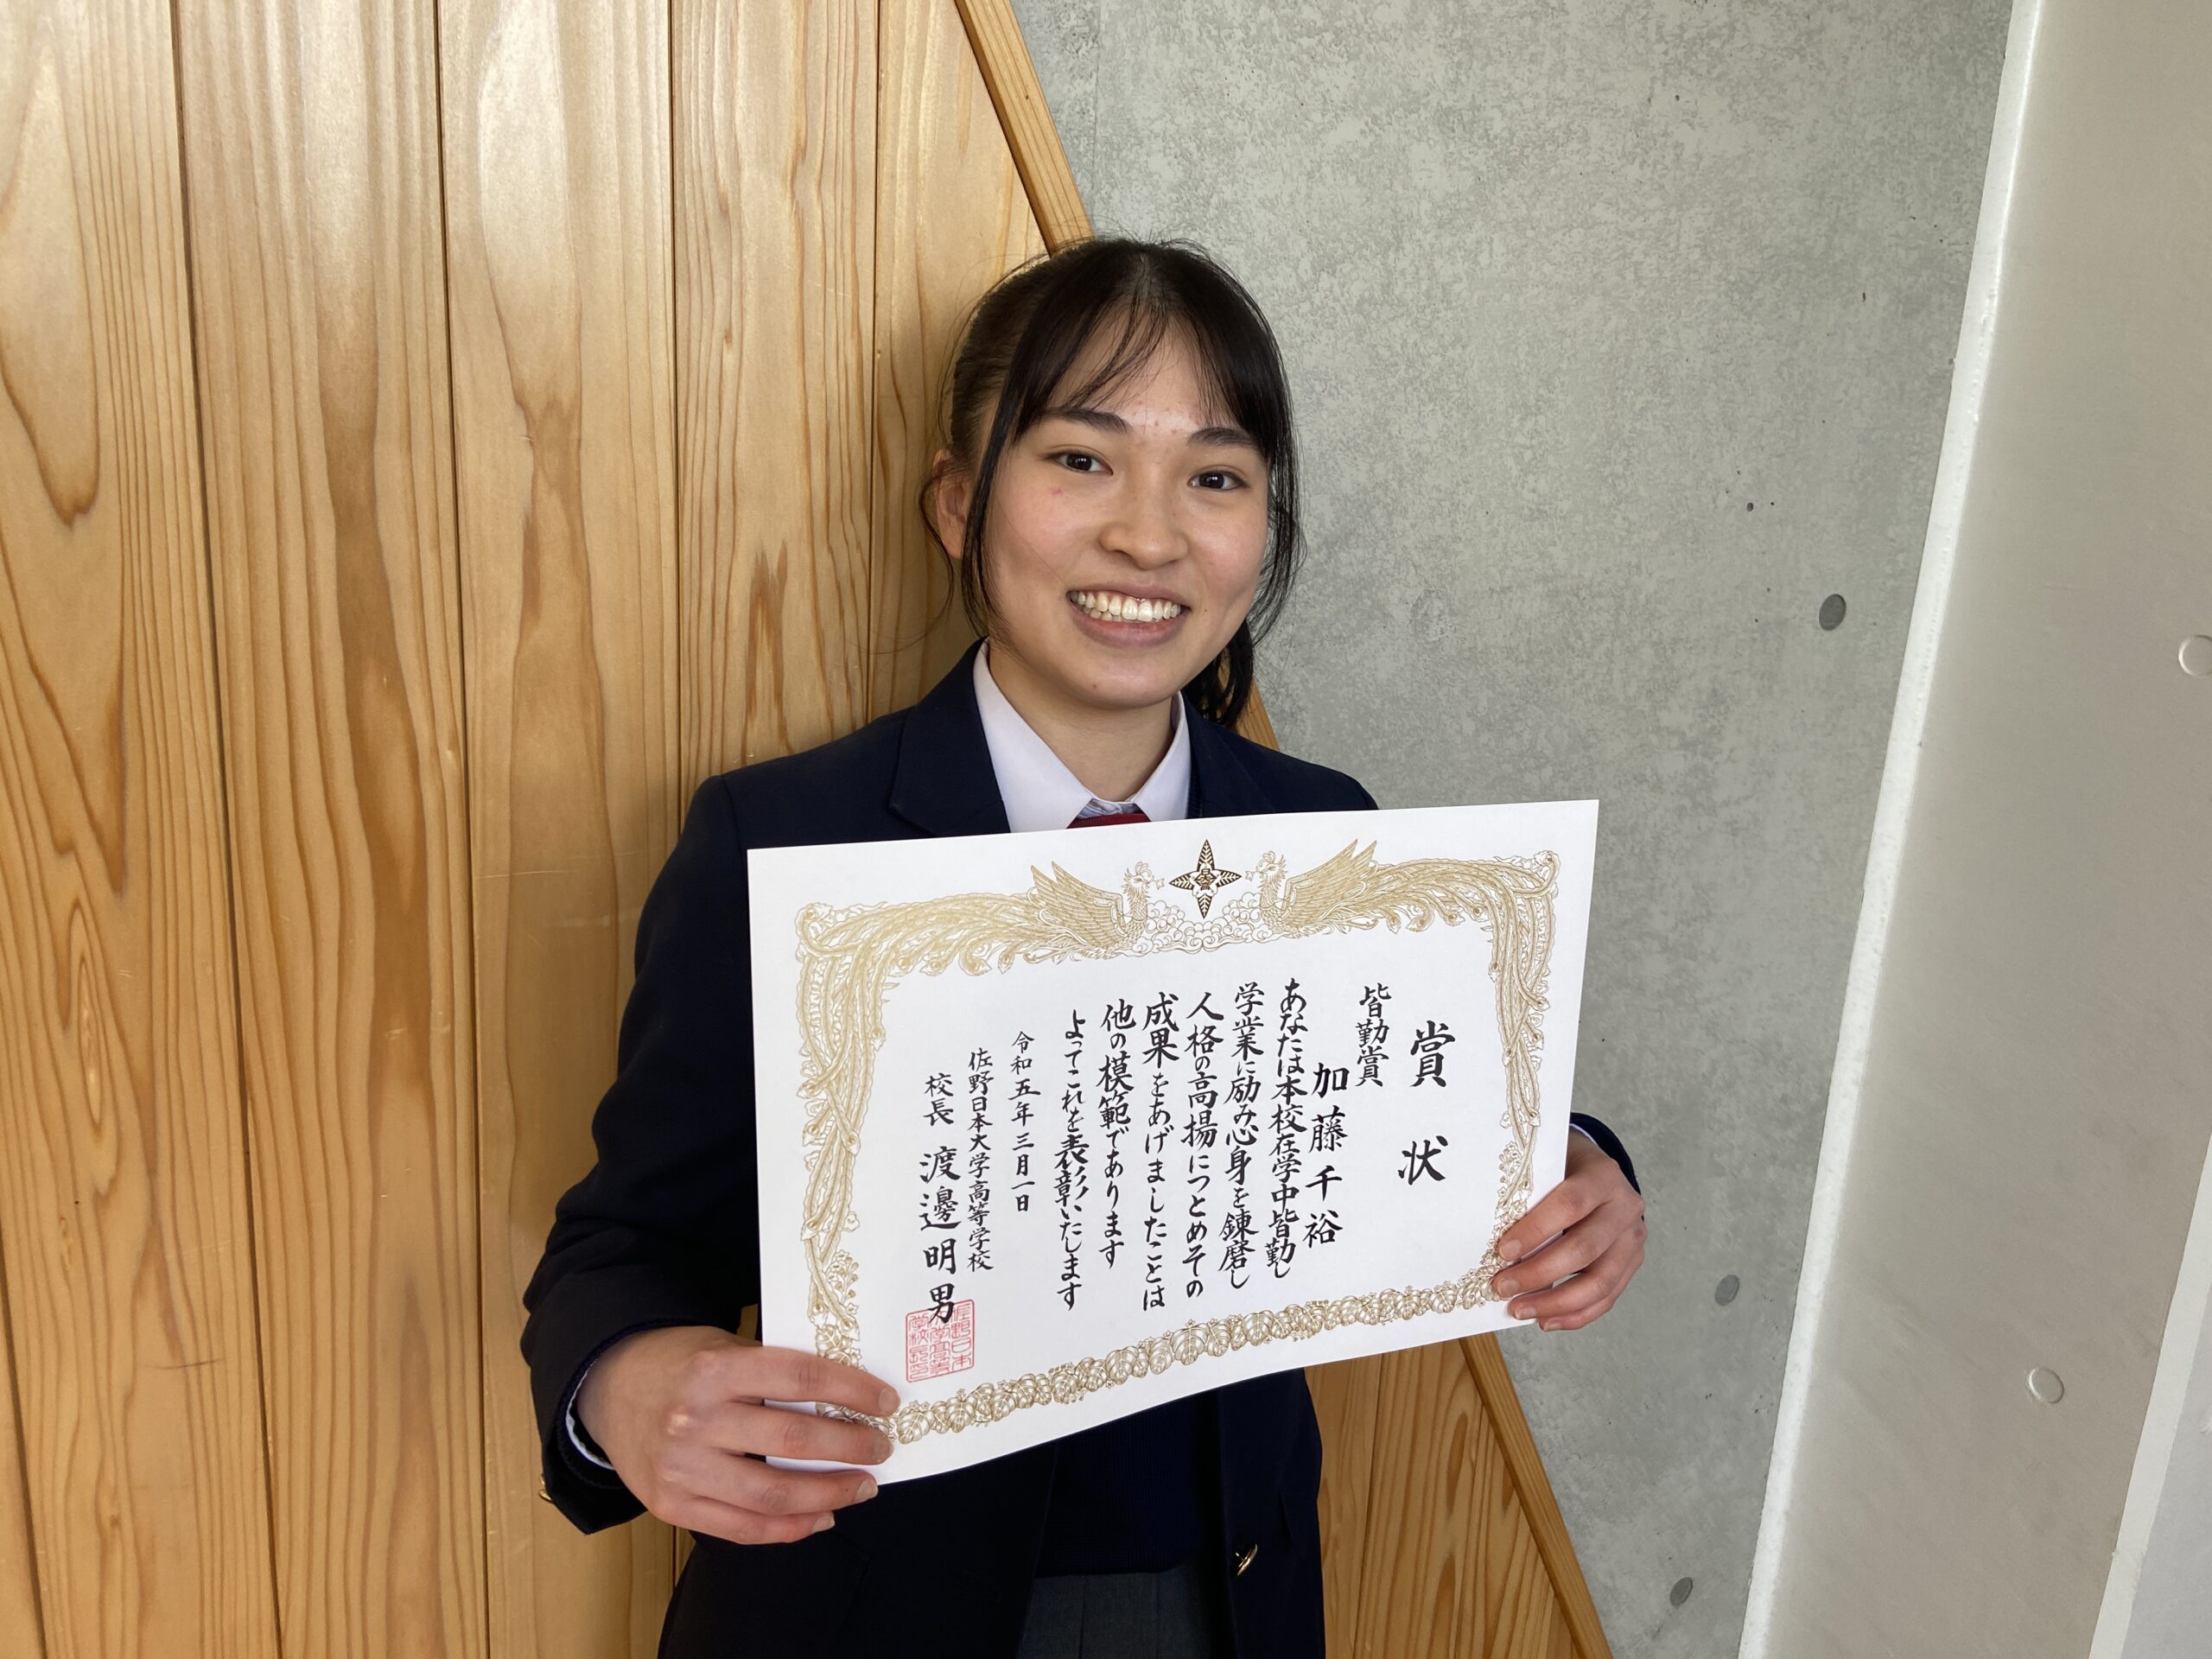 賞状
皆勤賞
加藤千裕
あなたは本校在学中皆勤し
学業に励み心身を錬磨し
人格の高揚につとめその
成果をあげましたことは
他の模範であります
よってこれを表彰いたします
令和五年三月一日
佐野日本大学高等学校
校長 渡邊明男